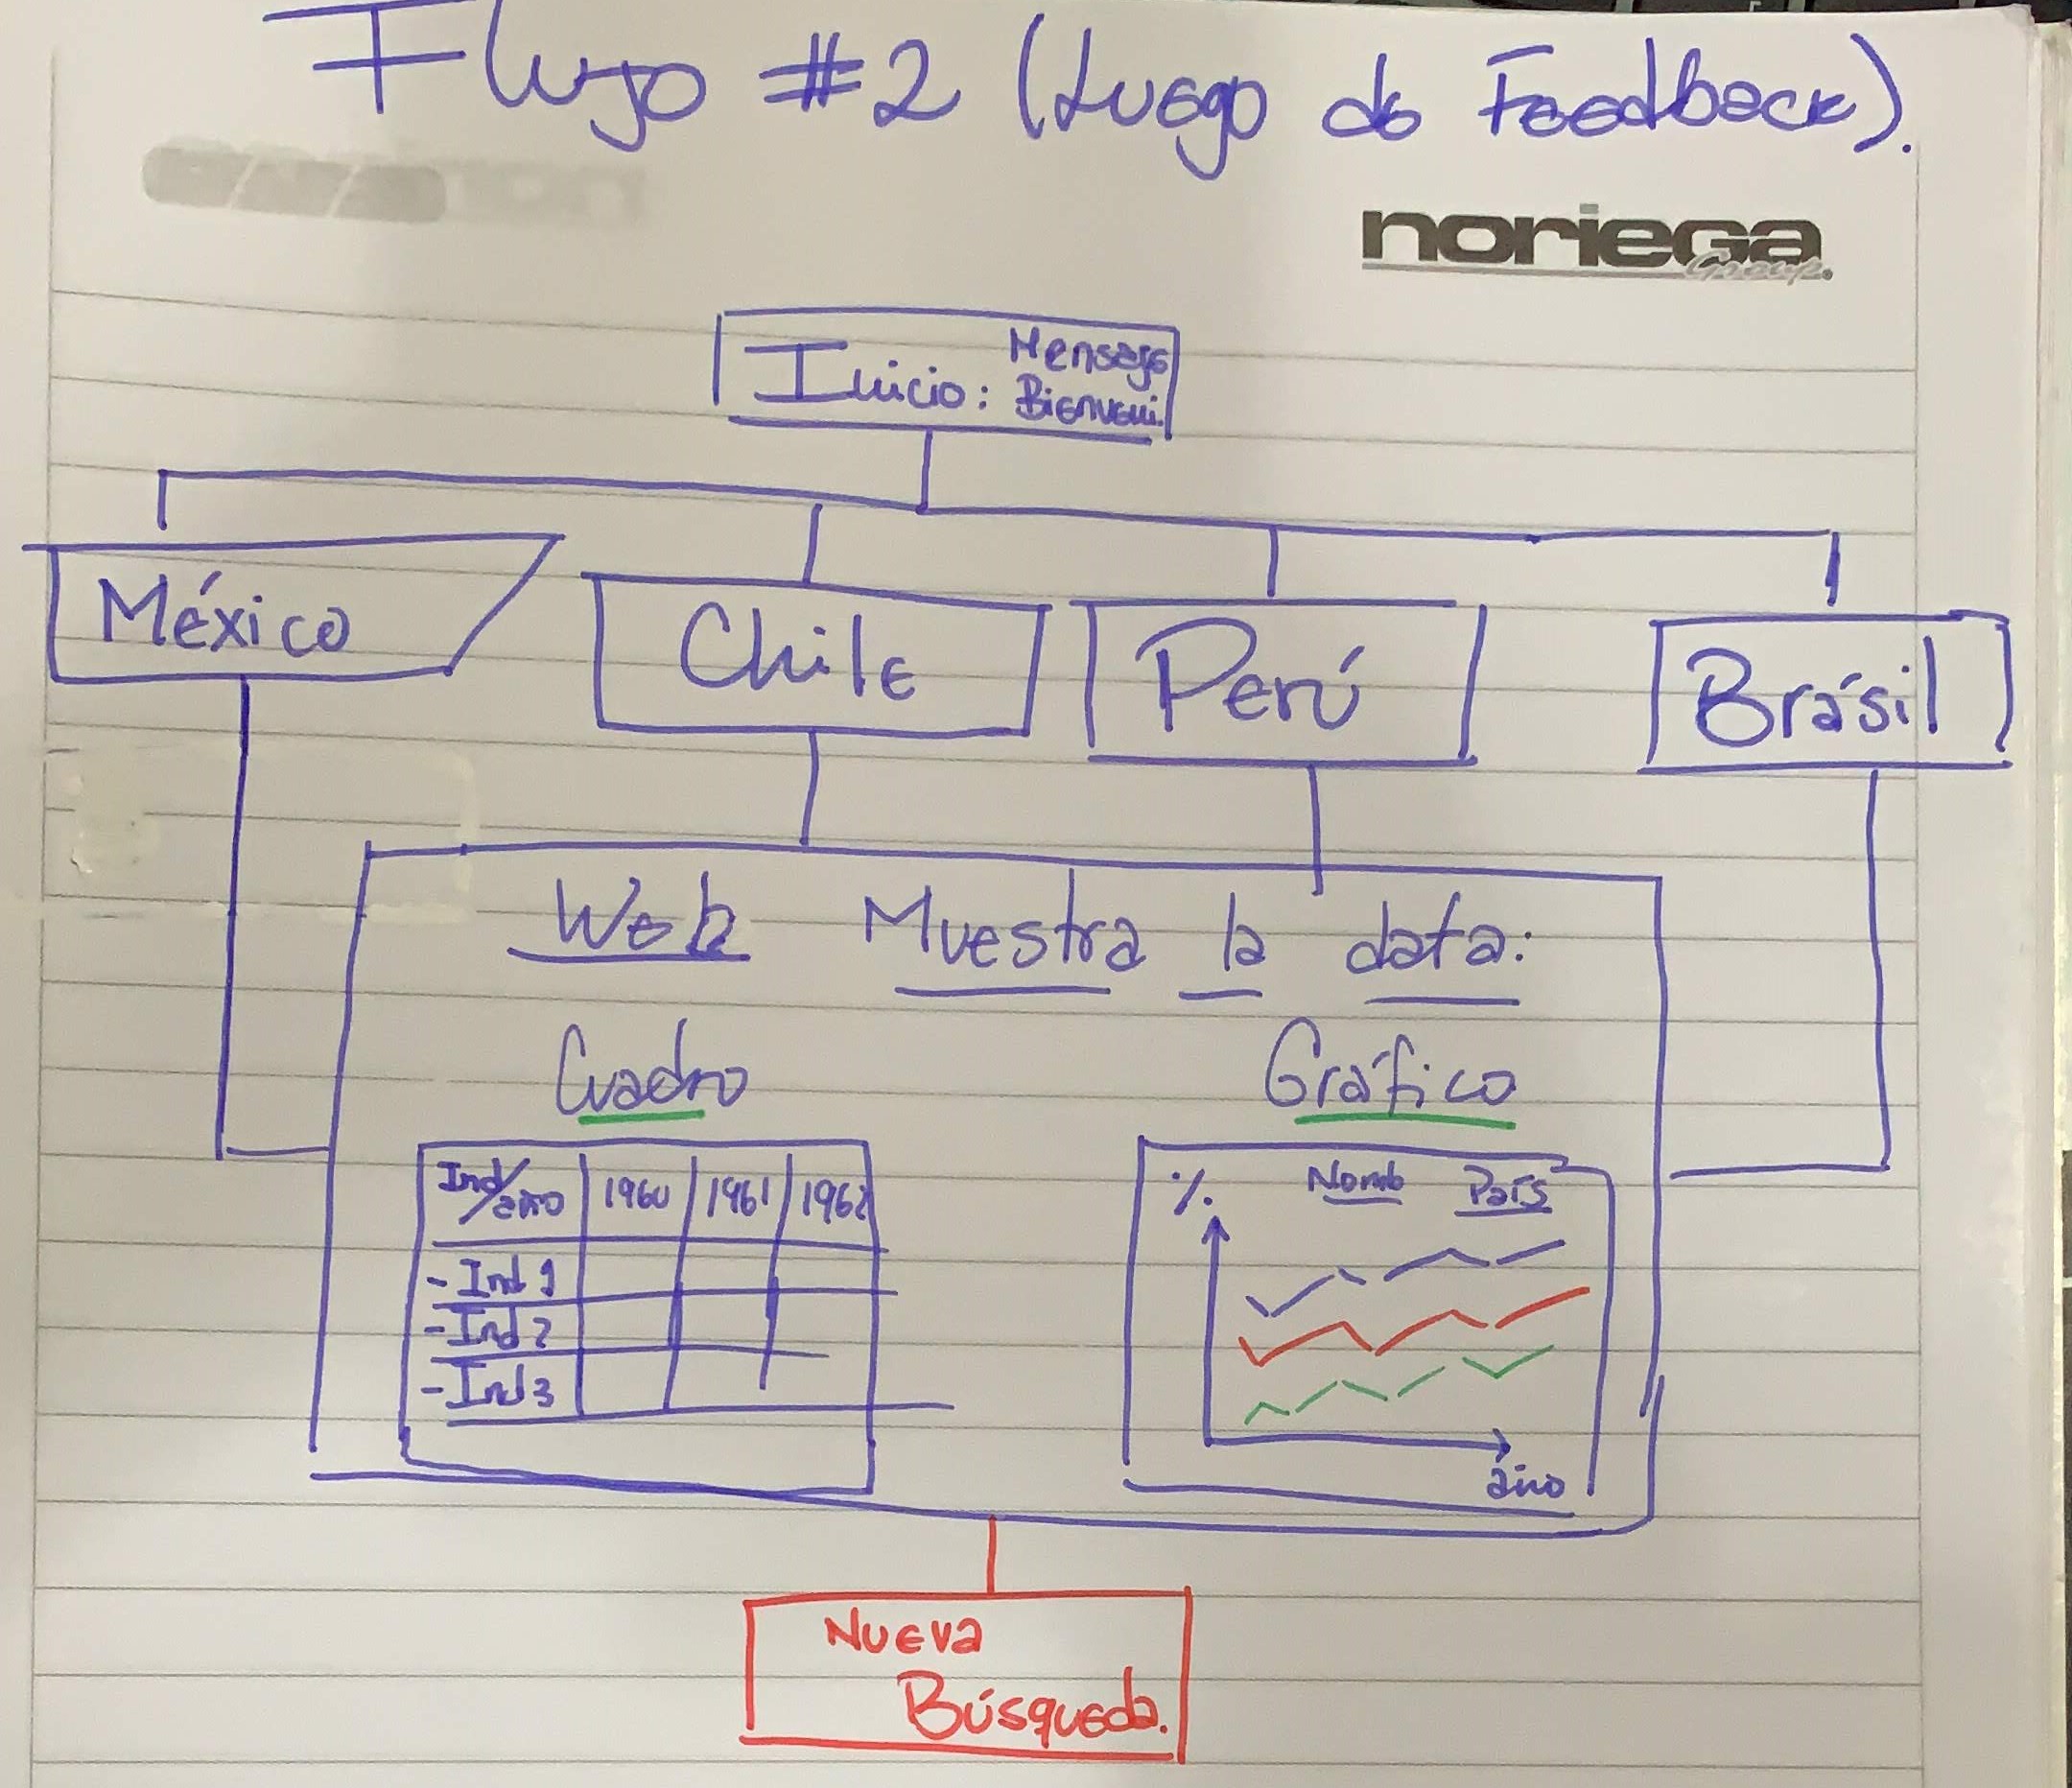 Flujo #2 (Luego de Feedback).
noriega
Group.
Inicio: Mensaje
Bienveni.
México
Chile
Perú
Brásil
Web Muestra la data:
Cuadro
Gráfico
Ind/año 1960 1961 1962
- Ind 1
- Ind 2
- Ind 3
% Nomb País
año
Nueva
Búsqueda.